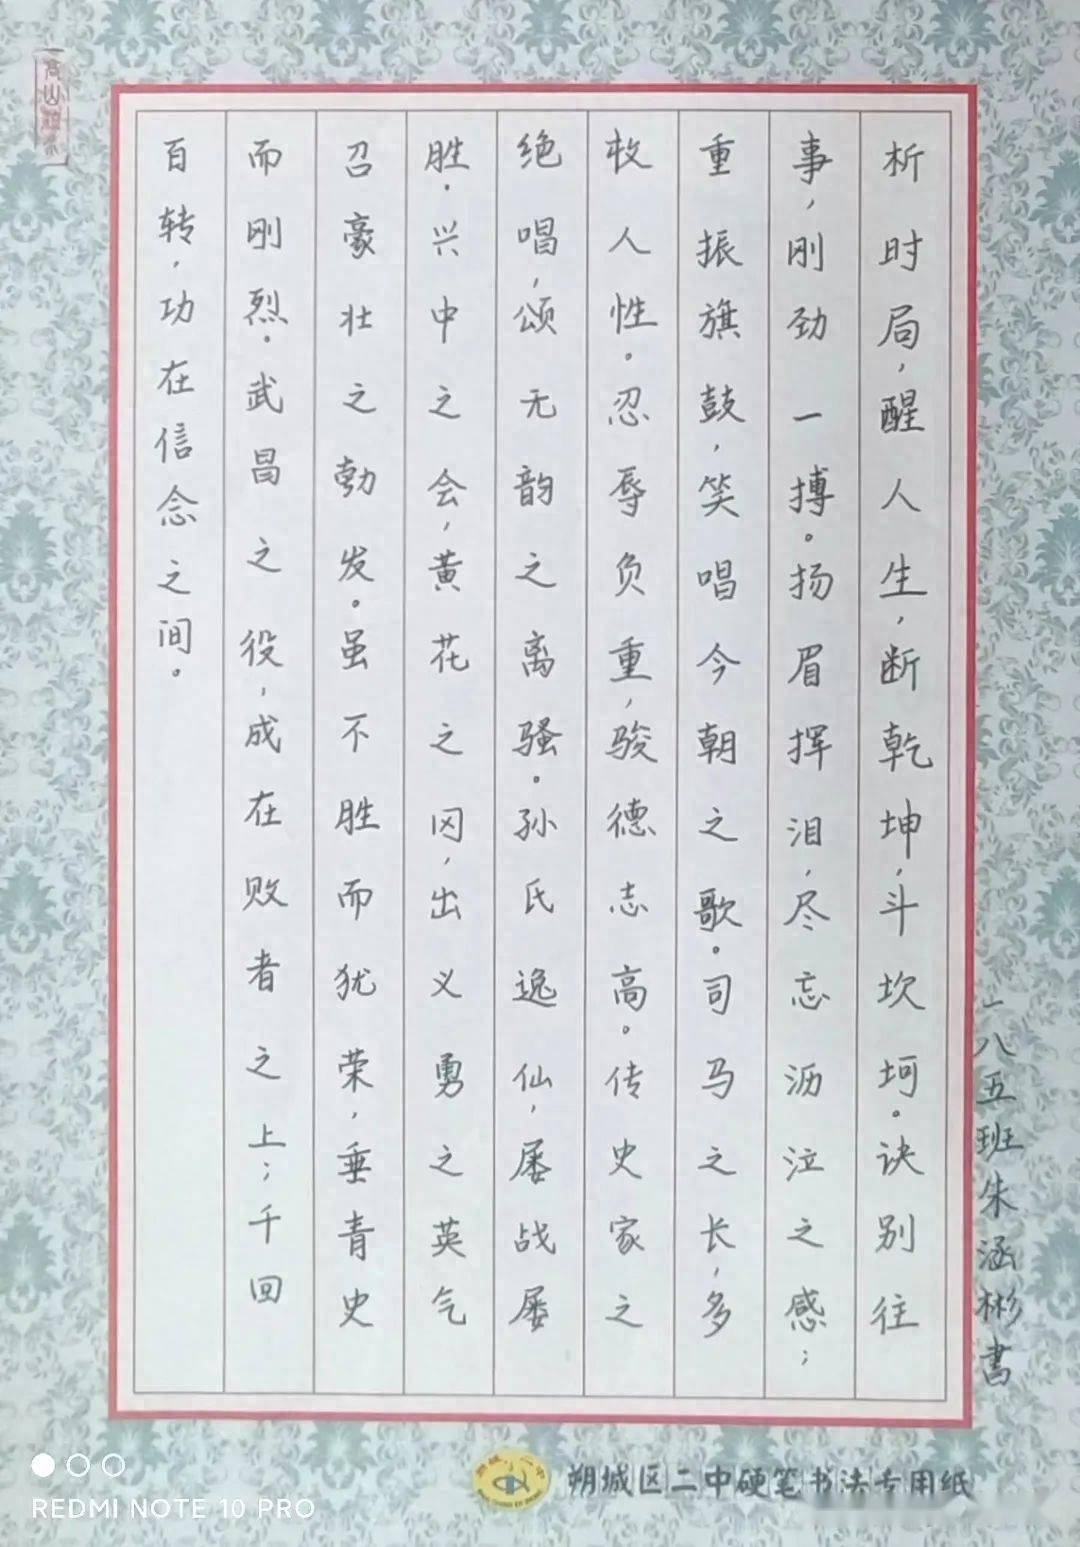 析时局，醒人生，断乾坤，斗坎坷。诀别往
事，刚劲一搏。扬眉挥泪，尽忘沥泣之感；
重振旗鼓，笑唱今朝之歌。司马之长，多
牧人性。忍辱负重，骏德志高。传史家之
绝唱，颂无韵之离骚。孙氏逸仙，屡战屡
胜。兴中之会，黄花之冈，出义勇之英气
召豪壮之勃发。虽不胜而犹荣，垂青史
而刚烈。武昌之役，成在败者之上；千回
百转，功在信念之间。
一八五班朱涵彬书
朔城区二中硬笔书法专用纸
REDMI NOTE 10 PRO